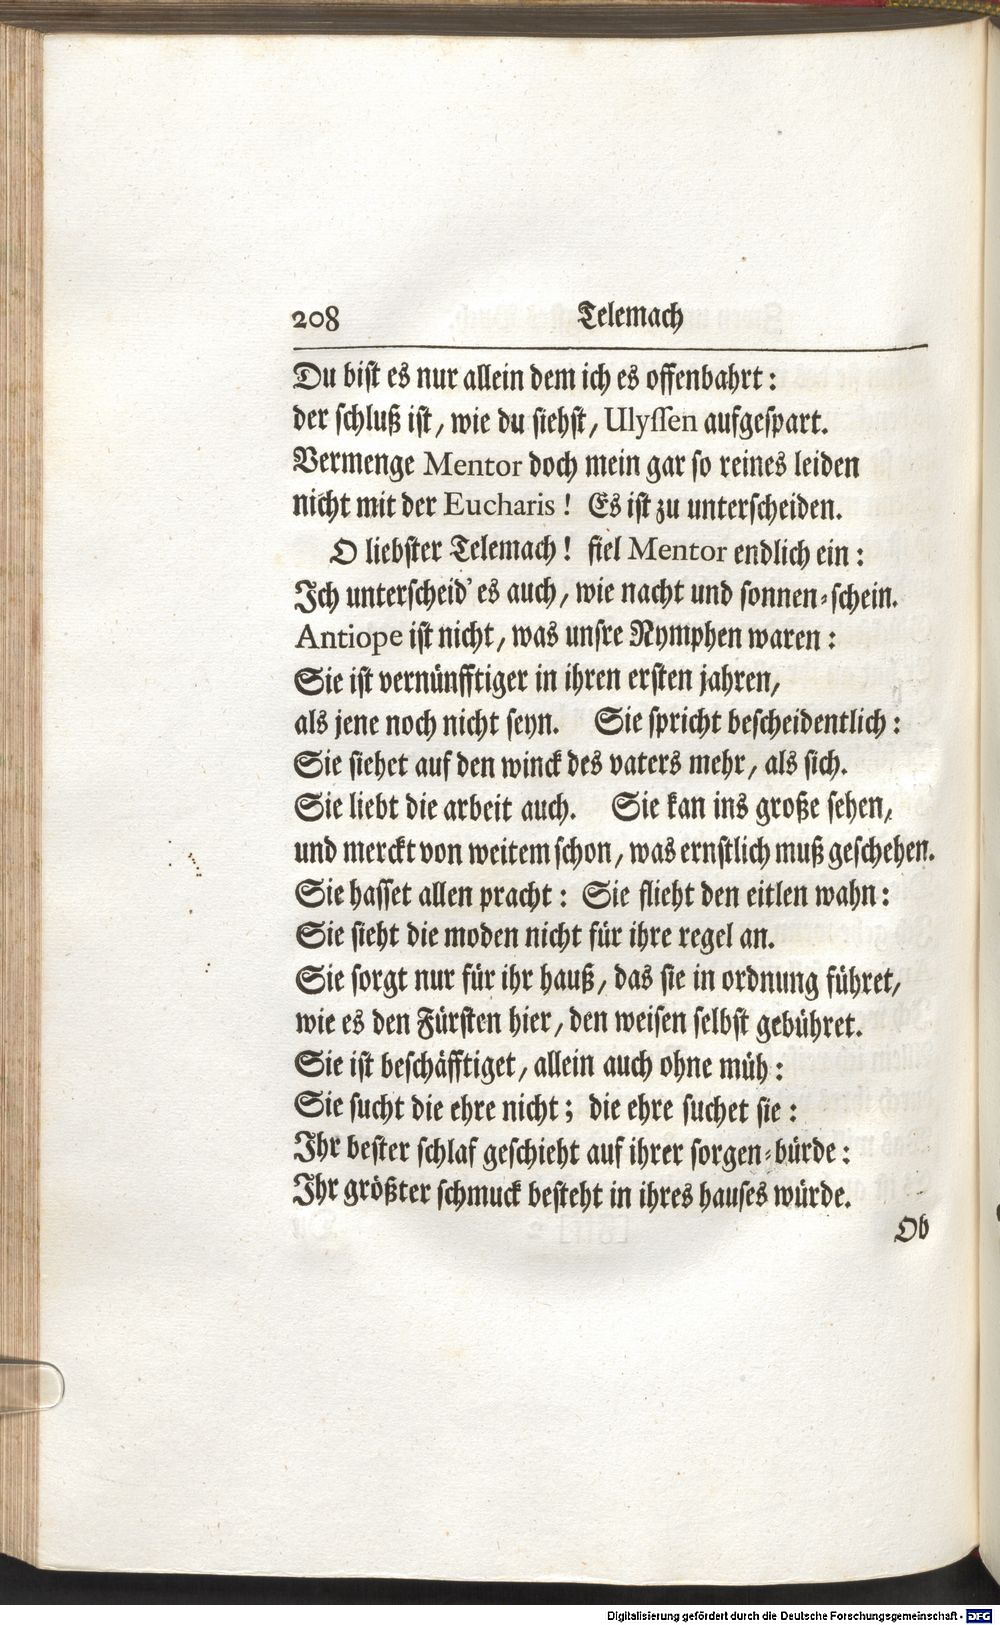 208 Telemach
Du bist es nur allein dem ich es offenbahrt:
der schluß ist, wie du siehst, Ulyssen aufgespart.
Vermenge Mentor doch mein gar so reines leiden
nicht mit der Eucharis! Es ist zu unterscheiden.
O liebster Telemach! fiel Mentor endlich ein:
Ich unterscheid' es auch, wie nacht und sonnen-schein.
Antiope ist nicht, was unsre Nymphen waren:
Sie ist vernünfftiger in ihren ersten jahren,
als jene noch nicht seyn. Sie spricht bescheidentlich:
Sie siehet auf den winck des vaters mehr, als sich.
Sie liebt die arbeit auch. Sie kan ins große sehen,
und merckt von weitem schon, was ernstlich muß geschehen.
Sie hasset allen pracht: Sie flieht den eitlen wahn:
Sie sieht die moden nicht für ihre regel an.
Sie sorgt nur für ihr hauß, das sie in ordnung führet,
wie es den Fürsten hier, den weisen selbst gebühret.
Sie ist beschäfftiget, allein auch ohne müh:
Sie sucht die ehre nicht; die ehre suchet sie:
Ihr bester schlaf geschieht auf ihrer sorgen-bürde:
Ihr größter schmuck besteht in ihres hauses würde.
Ob
Digitalisierung gefördert durch die Deutsche Forschungsgemeinschaft - DFG